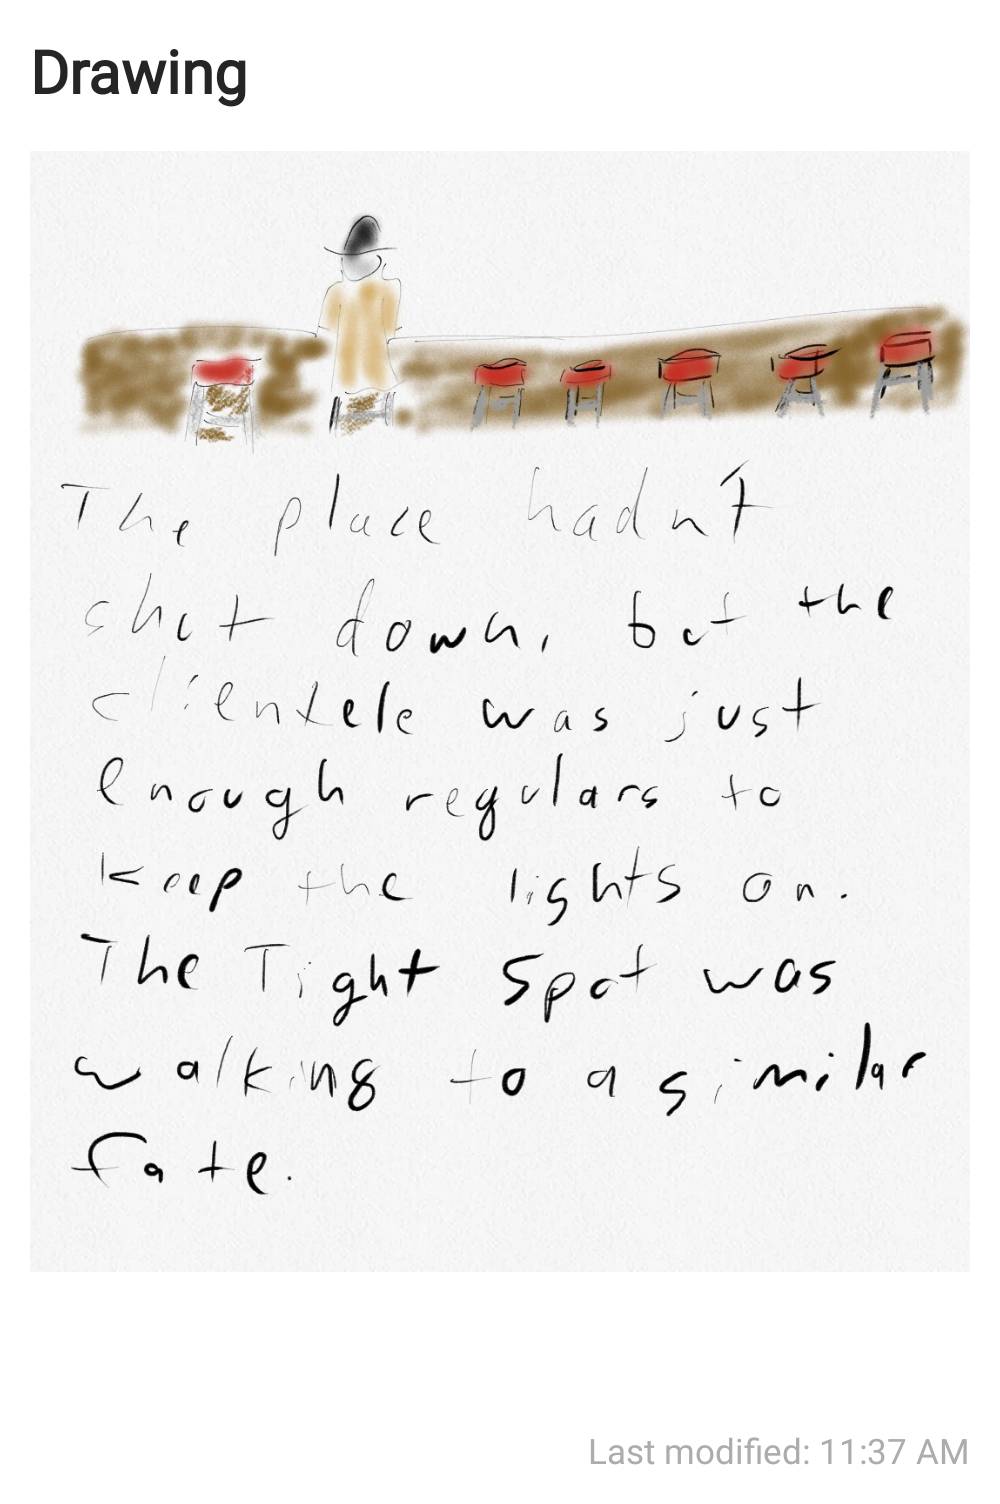 Drawing
The place hadn't
shut down, but the
clientele was just
enough regulars to
keep the lights on.
The Tight Spot was
walking to a similar
fate.
Last modified: 11:37 AM